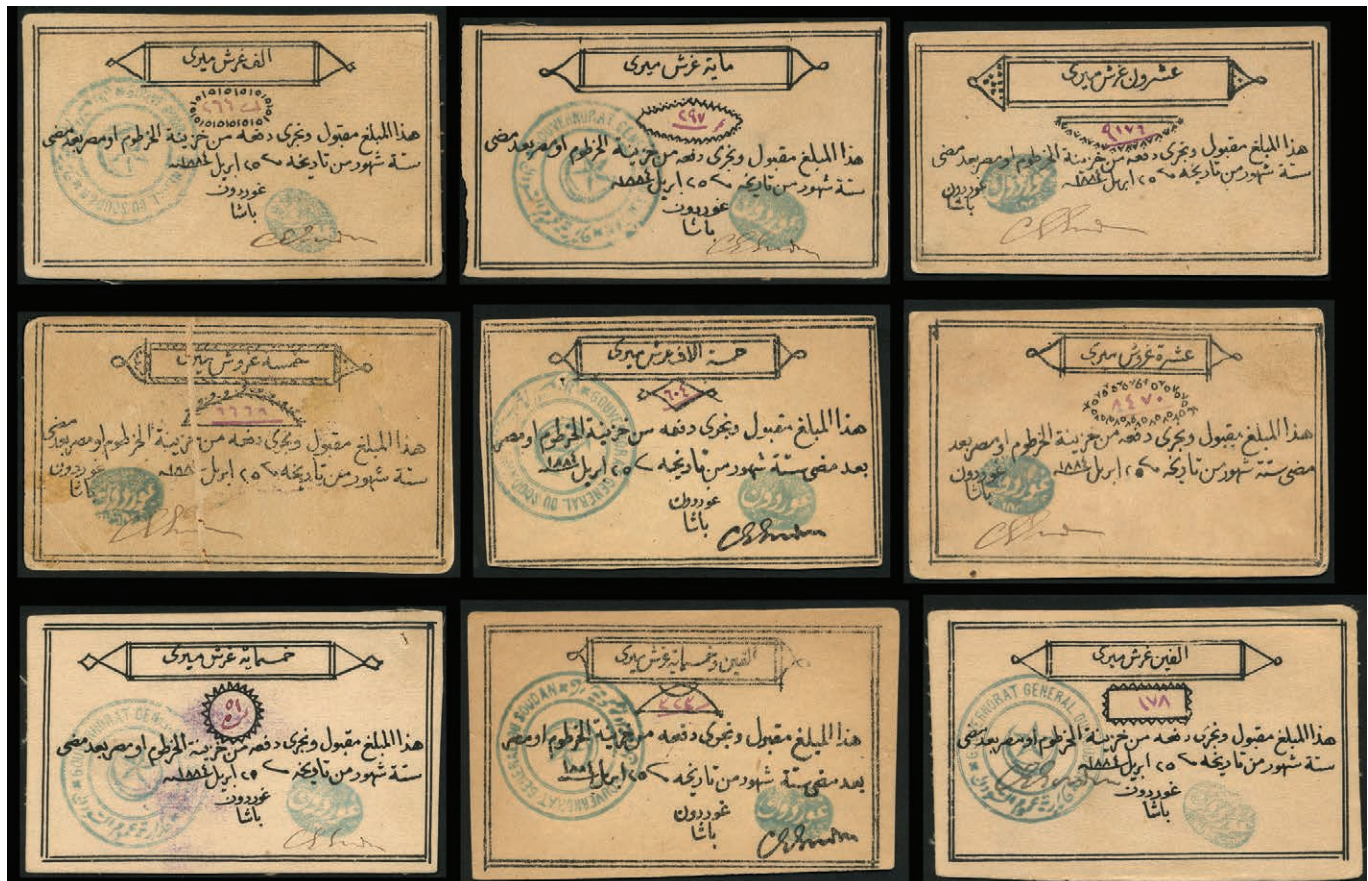 الف غرش ميرى
٢٦٦
هذا المبلغ مقبول ويجرى دفعه من خزينة الخرطوم او مصر بعد مضى
ستة شهور من تاريخه ٢٥ ابريل ١٨٨٤
غوردون
باشا
ماية غرش ميرى
٢٩٧
GOUVERNORAT GENERAL
هذا المبلغ مقبول ويجرى دفعه من خزينة الخرطوم او مصر بعد مضى
ستة شهور من تاريخه ٢٥ ابريل ١٨٨٤
غوردون
باشا
عشرون غرش ميرى
٩١٧٦
هذا المبلغ مقبول ويجرى دفعه من خزينة الخرطوم او مصر بعد مضى
ستة شهور من تاريخه ٢٥ ابريل ١٨٨٤
غوردون
باشا
خمسة غروش ميرى
هذا المبلغ مقبول ويجرى دفعه من خزينة الخرطوم او مصر بعد مضى
ستة شهور من تاريخه ٢٥ ابريل ١٨٨٤
غوردون
باشا
خمسة الاف غرش ميرى
٦٠٤
GENERAL DU SOUDAN
هذا المبلغ مقبول ويجرى دفعه من خزينة الخرطوم او مصر
بعد مضى ستة شهور من تاريخه ٢٥ ابريل ١٨٨٤
غوردون
باشا
عشرة غروش ميرى
٨٤٧٠
هذا المبلغ مقبول ويجرى دفعه من خزينة الخرطوم او مصر بعد
مضى ستة شهور من تاريخه ٢٥ ابريل ١٨٨٤
غوردون
باشا
خمسماية غرش ميرى
٥١
هذا المبلغ مقبول ويجرى دفعه من خزينة الخرطوم او مصر بعد مضى
ستة شهور من تاريخه ٢٥ ابريل ١٨٨٤
غوردون
باشا
الفين وخمسماية غرش ميرى
GOUVERNORAT GENERAL DU SOUDAN
هذا المبلغ مقبول ويجرى دفعه من خزينة الخرطوم او مصر
بعد مضى ستة شهور من تاريخه ٢٥ ابريل ١٨٨٤
غوردون
باشا
الفين غرش ميرى
١٧٨
GOUVERNORAT GENERAL DU
هذا المبلغ مقبول ويجرى دفعه من خزينة الخرطوم او مصر بعد مضى
ستة شهور من تاريخه ٢٥ ابريل ١٨٨٤
غوردون
باشا